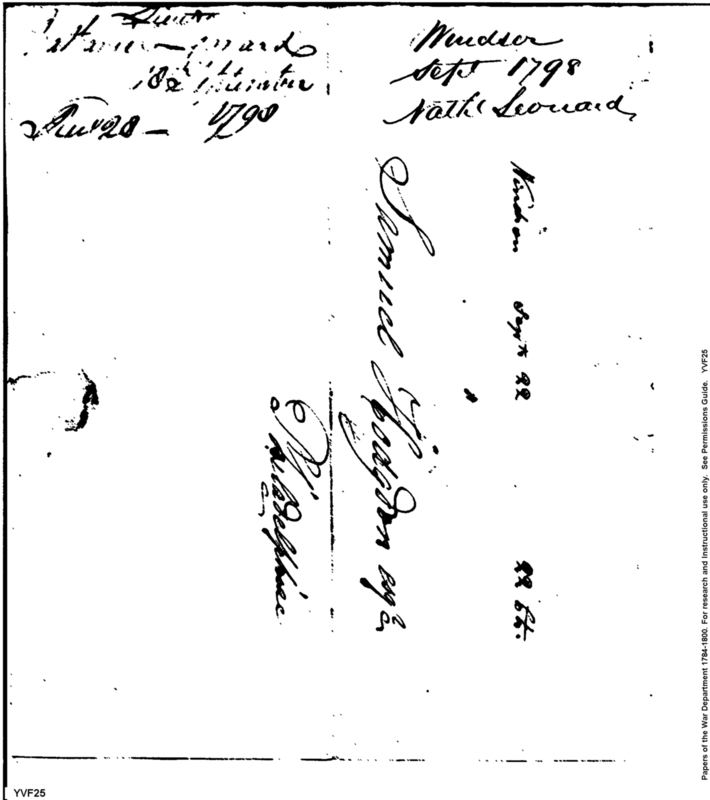 Lieut
Leonard
18 September
28 — 1798
Windsor
Sept 1798
Nathl Leonard
Windsor Sept 22 22 Ct.
Samuel Hodgdon esqr
Philadelphia
Papers of the War Department 1784-1800. For research and Instructional use only. See Permissions Guide. YVF25
YVF25